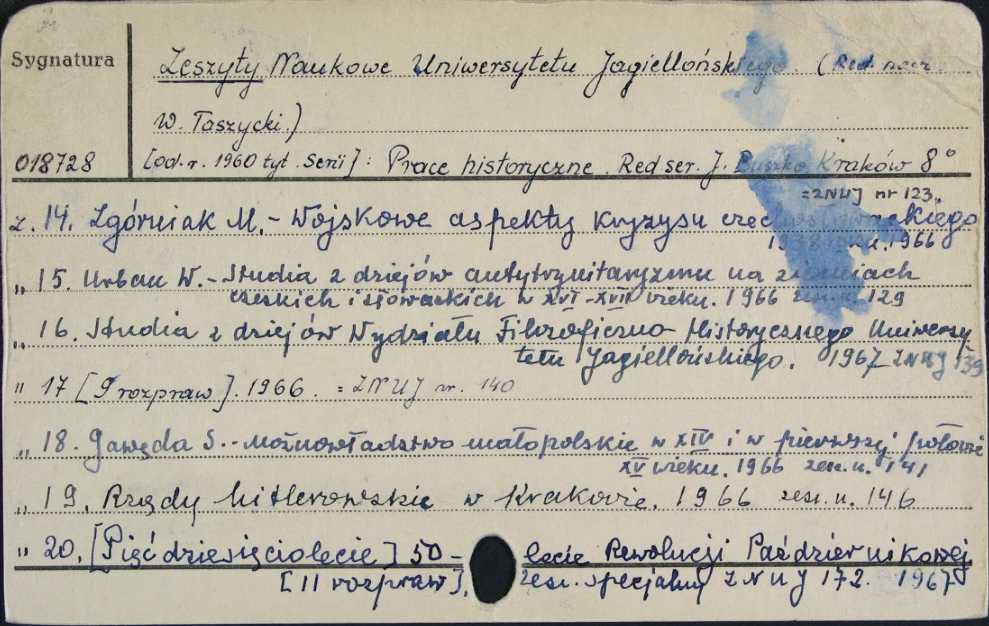 Sygnatura
Zeszyty Naukowe Uniwersytetu Jagiellońskiego. (Red. nacz.
W. Taszycki.)
018728 [od r. 1960 tyt. serii]: Prace historyczne. Red ser. J. Buszko Kraków 8°
=ZNUJ nr 123,
z. 14. Zgórniak M. - Wojskowe aspekty kryzysu czechosłowackiego
1966
„ 15. Urban W. - Studia z dziejów antytrynitaryzmu na ziemiach
czeskich i słowackich w XVI-XVII wieku. 1966 zesz. n. 129
„ 16. Studia z dziejów Wydziału Filozoficzno-Historycznego Uniwersy-
tetu Jagiellońskiego. 1967 ZNUJ 139
„ 17 [9 rozpraw]. 1966. = ZNUJ nr. 140
„ 18. Gawęda S. - Możnowładztwo małopolskie w XIV i w pierwszej połowie
XV wieku. 1966 zesz. n. 141
„ 19. Rządy hitlerowskie w Krakowie. 1966 zesz. n. 146
„ 20. [Pięćdziesięciolecie] 50-lecie Rewolucji Październikowej
[11 rozpraw]. zesz. specjalny ZNUJ 172. 1967